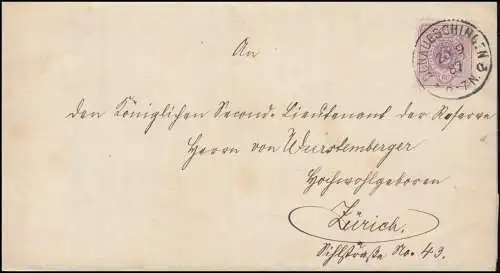 DONAUESCHINGEN
25 9
87
6-7N.
An
den Königlichen Second-Lieutenant der Reserve
Herrn von Wurstemberger
Hochwohlgeboren
Zürich.
Sihlstraße No. 43.